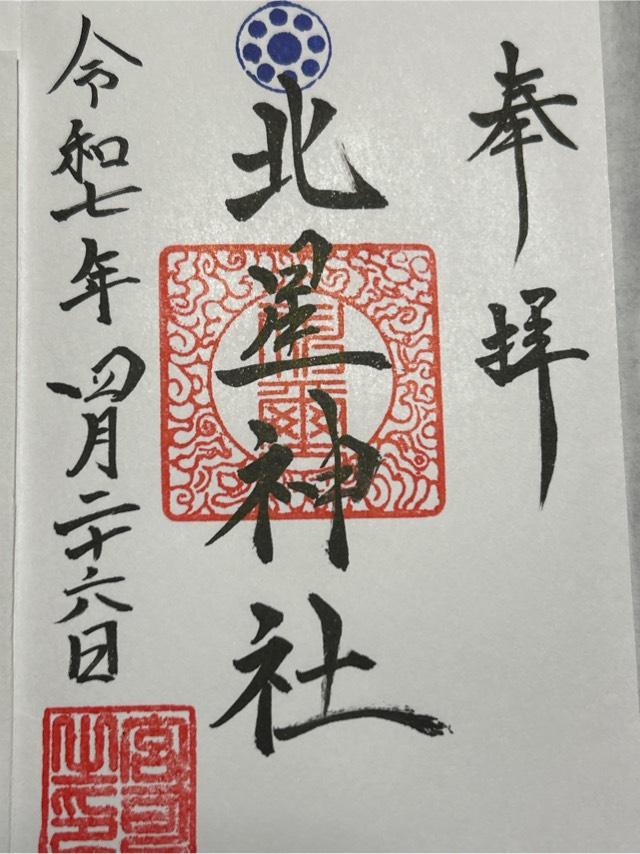 奉拝
北星神社
令和七年四月二十六日
宮司之印